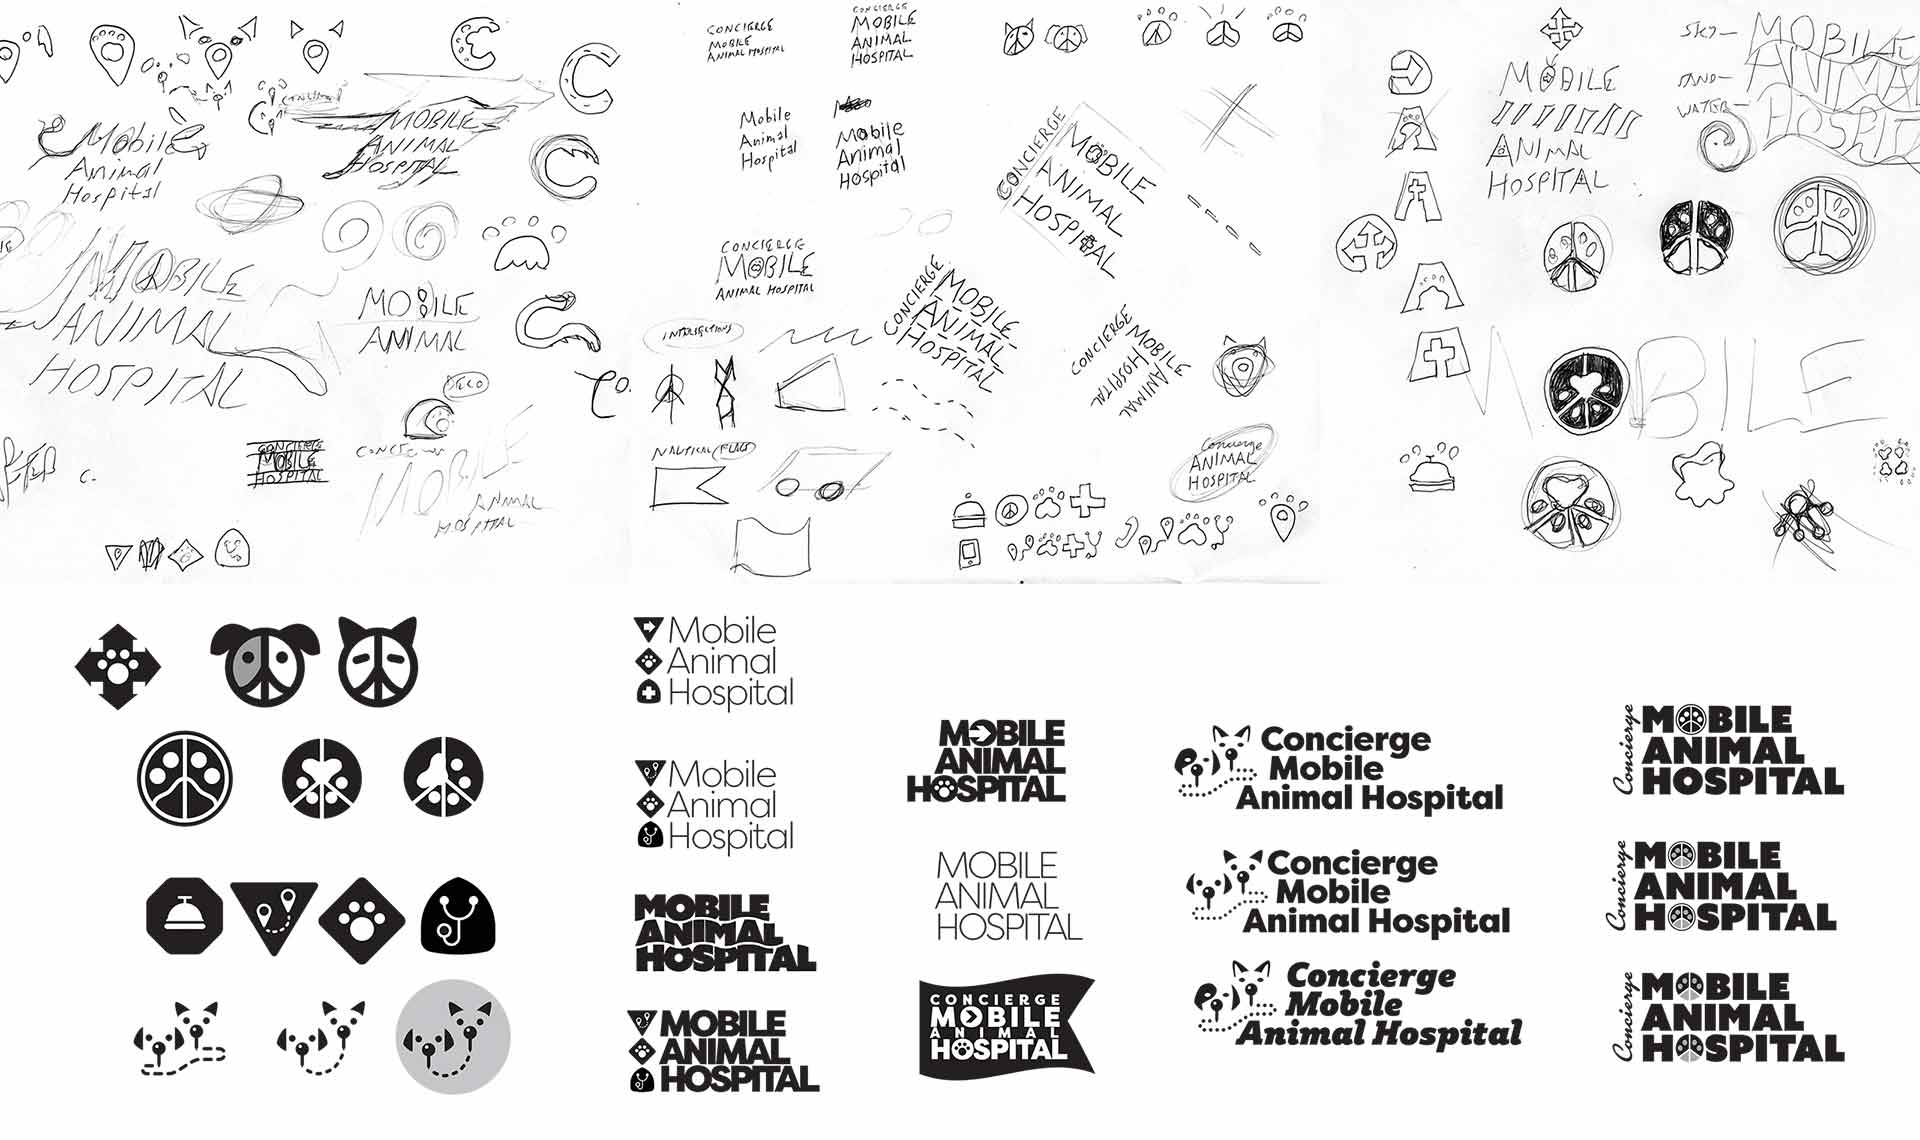 CONCIERGE
MOBILE
ANIMAL HOSPITAL
CONCIERGE
MOBILE
ANIMAL
HOSPITAL
Mobile
Animal
Hospital
MOBILE
ANIMAL
HOSPITAL
MOBILE
ANIMAL
HOSPITAL
MOBILE
ANIMAL
C.
CO.
CONCIERGE
MOBILE
HOSPITAL
MOBILE
ANIMAL
HOSPITAL
Mobile
Animal
Hospital
Mobile
Animal
Hospital
CONCIERGE
MOBILE
ANIMAL
HOSPITAL
CONCIERGE
MOBILE
ANIMAL HOSPITAL
CONCIERGE
MOBILE
ANIMAL
HOSPITAL
INTERSECTIONS
CONCIERGE
MOBILE
ANIMAL
HOSPITAL
NAUTICAL FLAGS
Concierge
ANIMAL
HOSPITAL
MOBILE
ANIMAL
HOSPITAL
SKY—
SAND—
WATER—
MOBILE
ANIMAL
HOSPITAL
MOBILE
Mobile
Animal
Hospital
Mobile
Animal
Hospital
MOBILE
ANIMAL
HOSPITAL
MOBILE
ANIMAL
HOSPITAL
MOBILE
ANIMAL
HOSPITAL
MOBILE
ANIMAL
HOSPITAL
CONCIERGE
MOBILE
ANIMAL
HOSPITAL
Concierge
Mobile
Animal Hospital
Concierge
Mobile
Animal Hospital
Concierge
Mobile
Animal Hospital
Concierge
MOBILE
ANIMAL
HOSPITAL
Concierge
MOBILE
ANIMAL
HOSPITAL
Concierge
MOBILE
ANIMAL
HOSPITAL